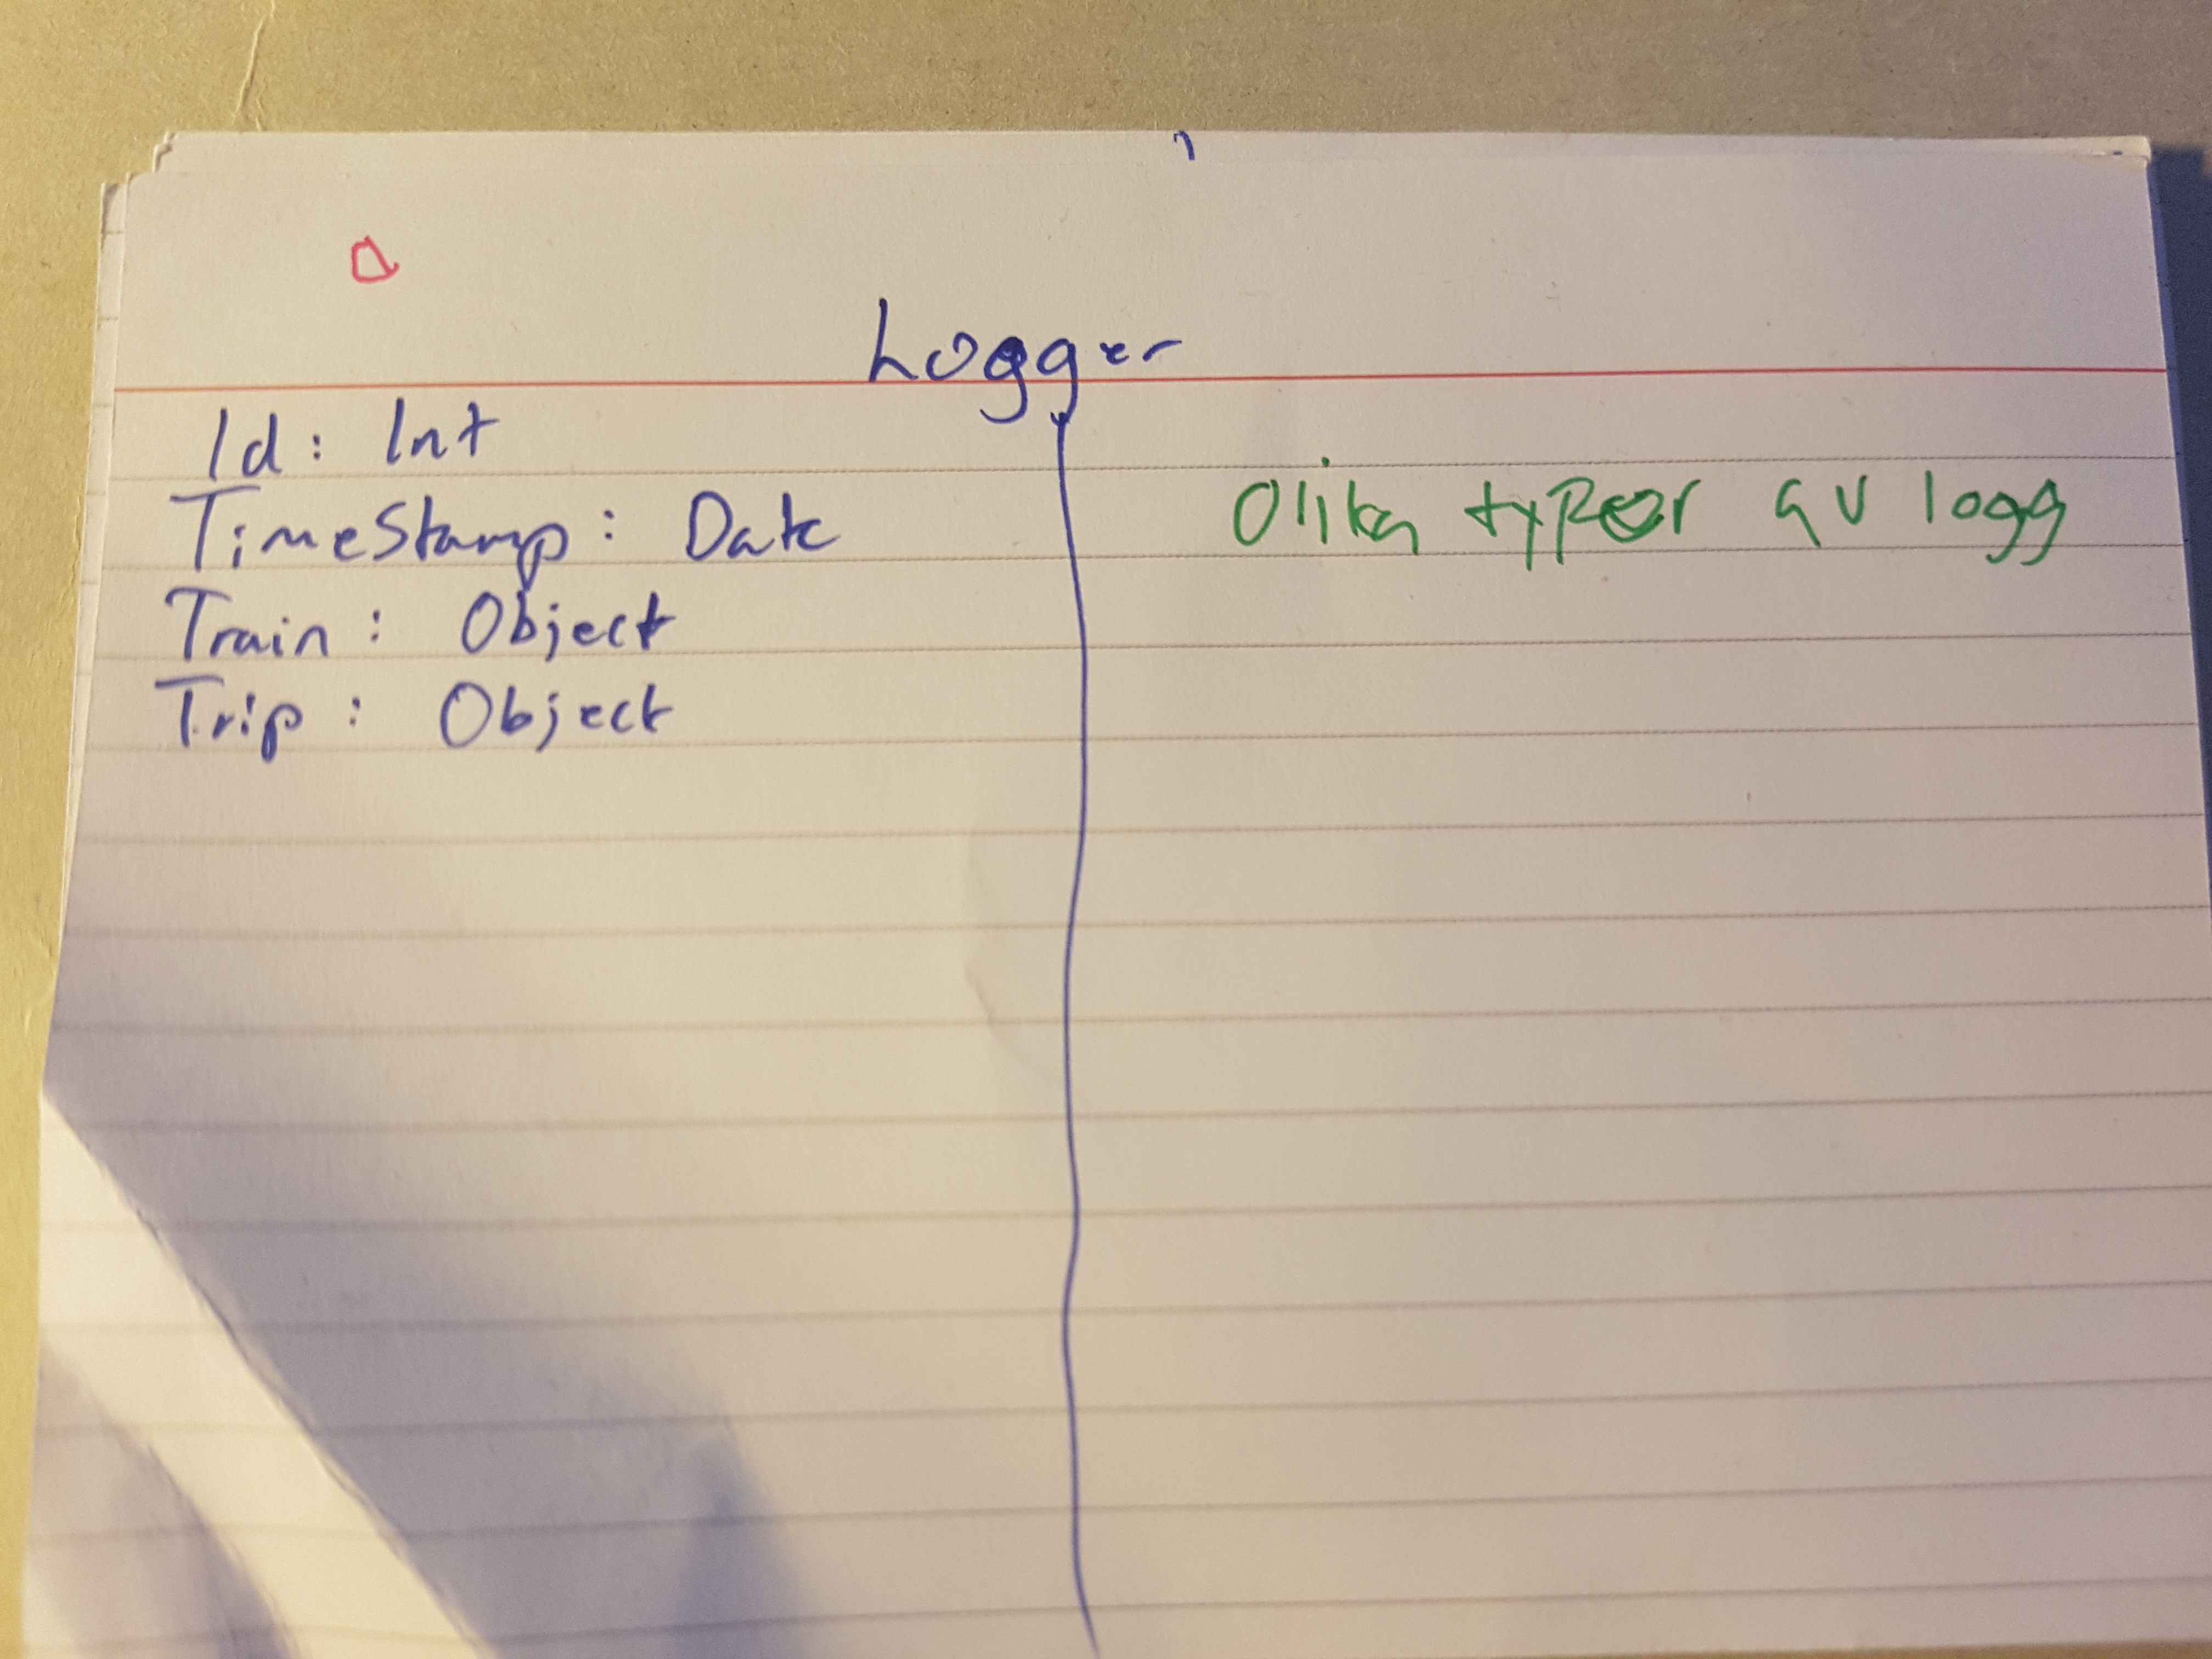 Logger
Id: Int
TimeStamp: Date
Train: Object
Trip: Object
Olika typer av logg